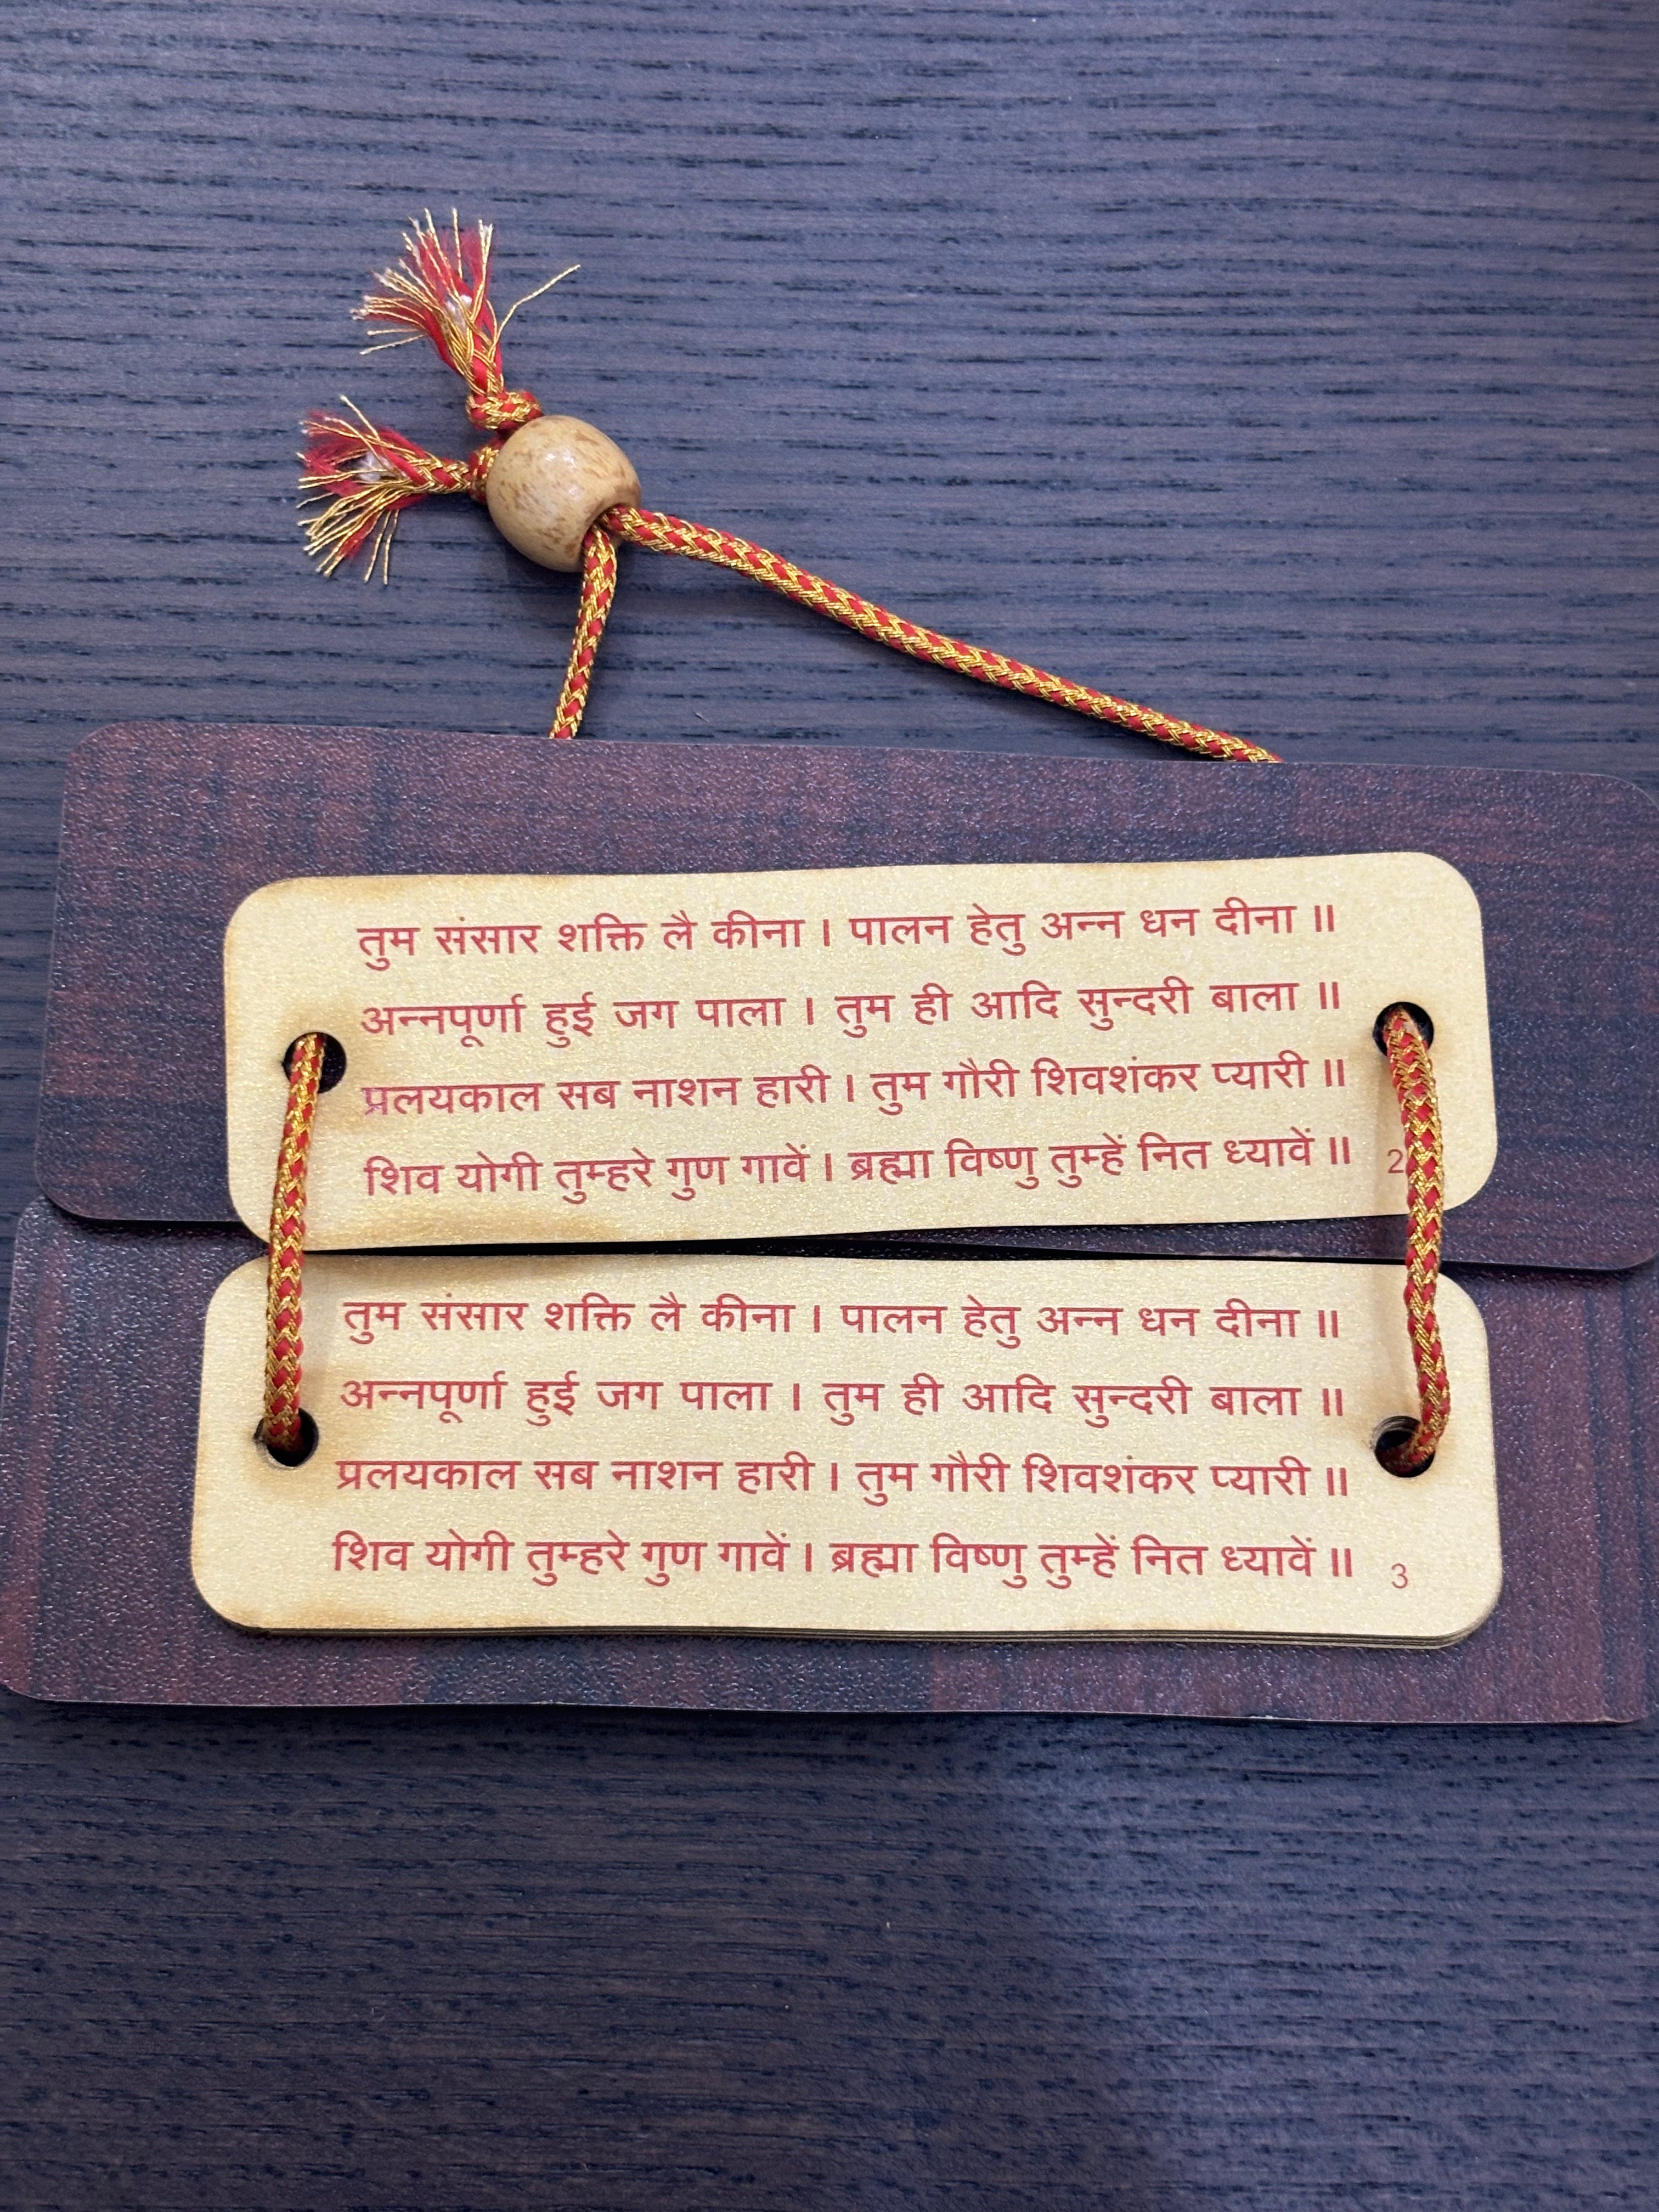 तुम संसार शक्ति लै कीना । पालन हेतु अन्न धन दीना ॥
अन्नपूर्णा हुई जग पाला । तुम ही आदि सुन्दरी बाला ॥
प्रलयकाल सब नाशन हारी । तुम गौरी शिवशंकर प्यारी ॥
शिव योगी तुम्हरे गुण गावें । ब्रह्मा विष्णु तुम्हें नित ध्यावें ॥
2
तुम संसार शक्ति लै कीना । पालन हेतु अन्न धन दीना ॥
अन्नपूर्णा हुई जग पाला । तुम ही आदि सुन्दरी बाला ॥
प्रलयकाल सब नाशन हारी । तुम गौरी शिवशंकर प्यारी ॥
शिव योगी तुम्हरे गुण गावें । ब्रह्मा विष्णु तुम्हें नित ध्यावें ॥
3